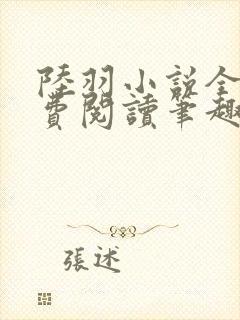 陸羽小說全
費閱讀筆趣
張述